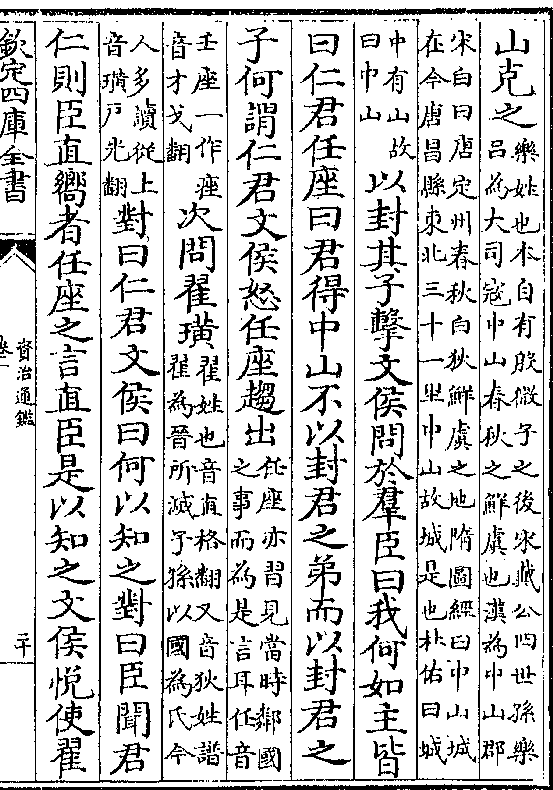 山克之樂姓也本自有殷微子之後宋戴公四世孫樂
呂為大司寇中山春秋之鮮虞也漢為中山郡
宋白曰唐定州春秋白狄鮮虞之地隋圖經曰中山城
在今唐昌縣東北三十一里中山故城是也杜佑曰城
中有山故
曰中山
以封其子擊文侯問於羣臣曰我何如主皆
曰仁君任座曰君得中山不以封君之弟而以封君之
子何謂仁君文侯怒任座趨出任座亦習見當時鄰國
之事而為是言耳任音
壬座一作痤
音才戈翻
次問翟璜翟姓也音直格翻又音狄姓譜
翟為晉所滅子孫以國為氏今
人多讀從上
音璜戸光翻
對曰仁君文侯曰何以知之對曰臣聞君
仁則臣直嚮者任座之言直臣是以知之文侯悅使翟
欽定四庫全書
資治通鑑
卷一
二十